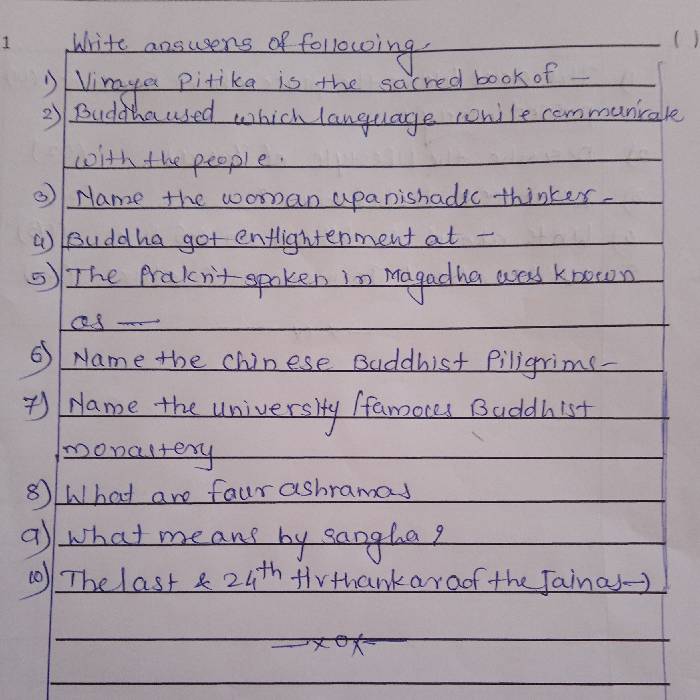 1 Write answers of following. ( )
1) Vinaya Pitika is the sacred book of –
2) Buddha used which language while communicate
with the people.
3) Name the woman upanishadic thinker –
4) Buddha got entlightenment at –
5) The Prakrit spoken in Magadha was known
as —
6) Name the Chinese Buddhist Piligrims –
7) Name the university / famous Buddhist
monastery
8) What are faur ashramas
9) What means by sangha ?
10) The last & 24th tirthankara of the Jainas –)
—x o x—